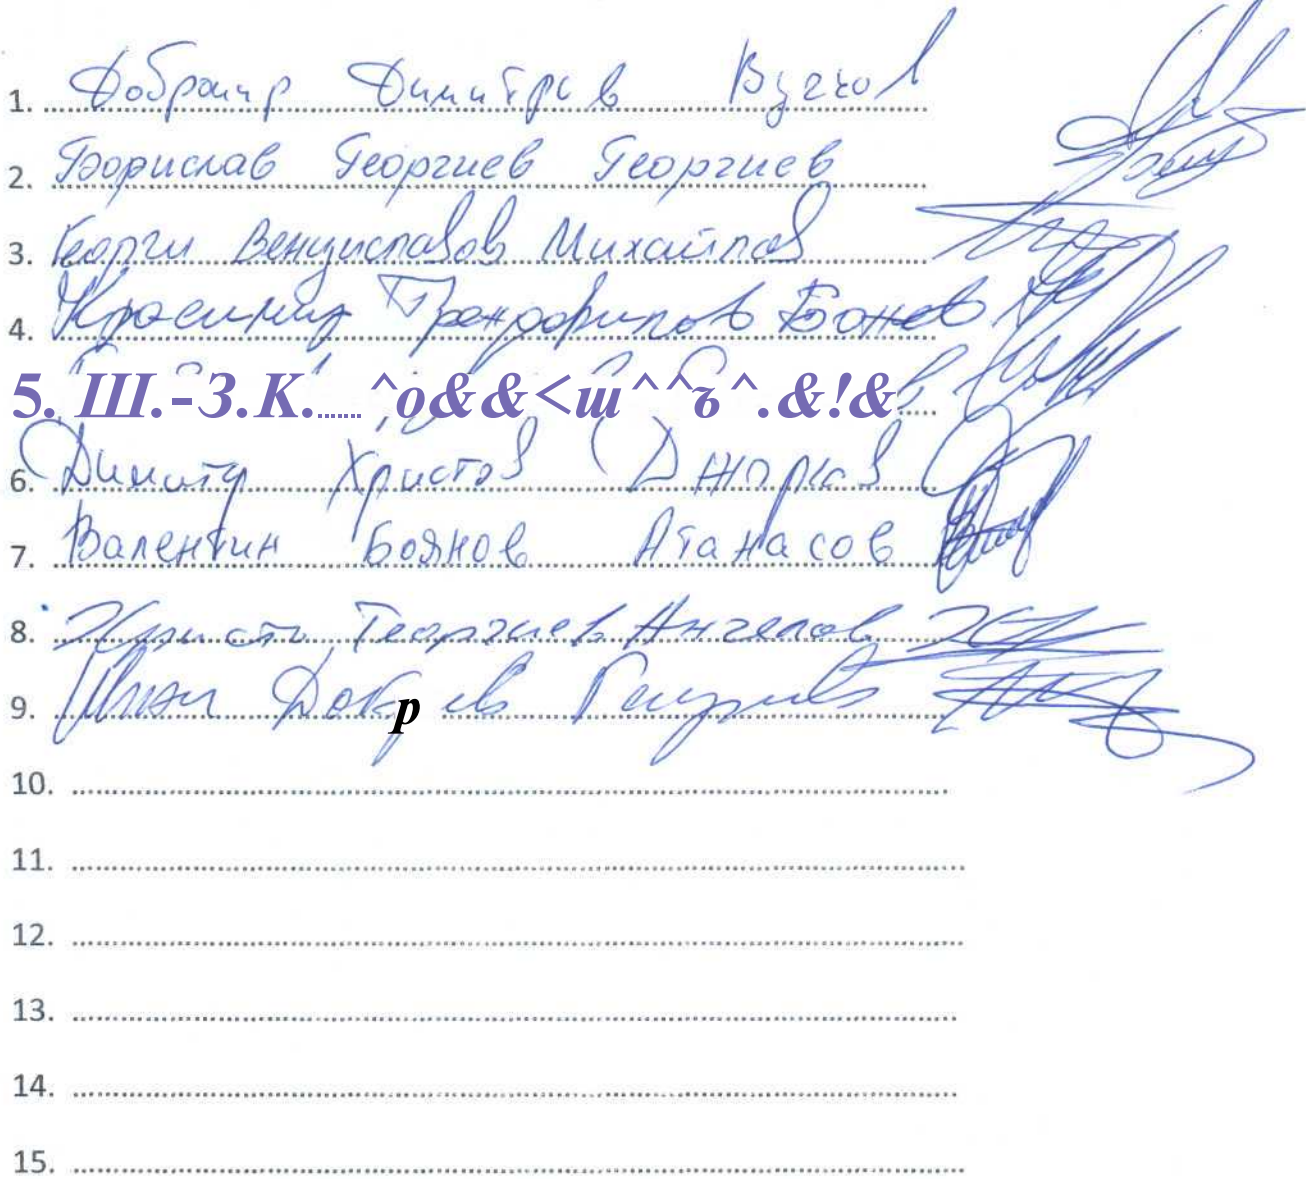 1. Добромир Димитров Вучков
2. Борислав Георгиев Георгиев
3. Георги Венциславов Михайлов
4. Красимир Трендафилов Бонев
5. Ш.-З.К....... ^о&&<ш^^ъ^.&!&в
6. Димитър Христов Джорков
7. Валентин Боянов Атанасов
8. Христо Георгиев Ангелов
9. Илиян
10.
11.
12.
13.
14.
15.